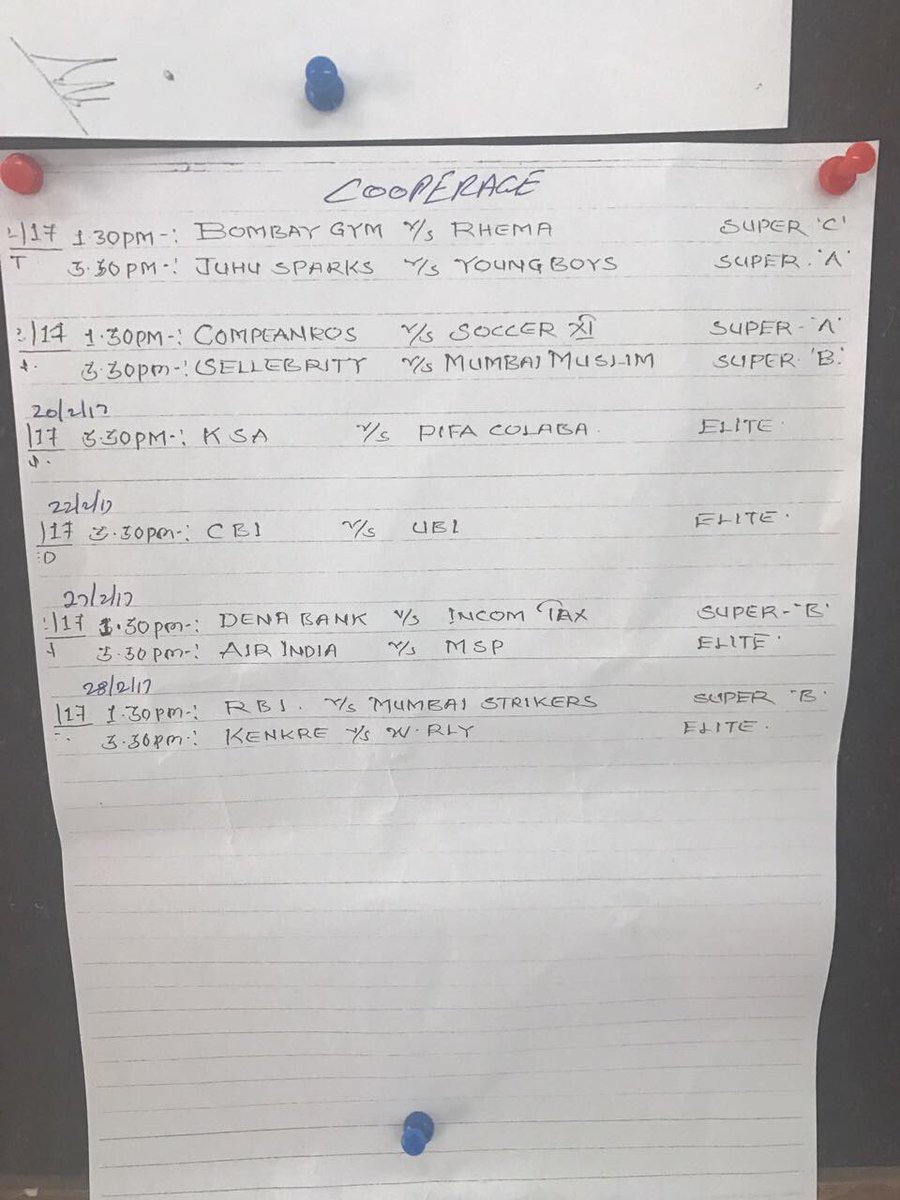 COOPERAGE
2/17 1.30PM-: BOMBAY GYM V/S RHEMA SUPER 'C'
T 3.30PM-: JUHU SPARKS V/S YOUNG BOYS SUPER. 'A'
2/17 1.30PM-: COMPEANROS V/S SOCCER XI SUPER-'A'
3.30pm-: SELLEBRITY V/S MUMBAI MUSLIM SUPER 'B.'
20/2/17
/17 3.30PM-: KSA V/S PIFA COLABA. ELITE.
22/2/17
/17 3.30pm-: CBI V/S UBI ELITE.
:D
27/2/17
/17 1.30pm-: DENA BANK V/S INCOM TAX SUPER-'B'
3.30pm-: AIR INDIA V/S MSP ELITE.
28/2/17
/17 1.30pm-: RBI. V/S MUMBAI STRIKERS SUPER 'B.
3.30pm-: KENKRE V/S W.RLY ELITE.